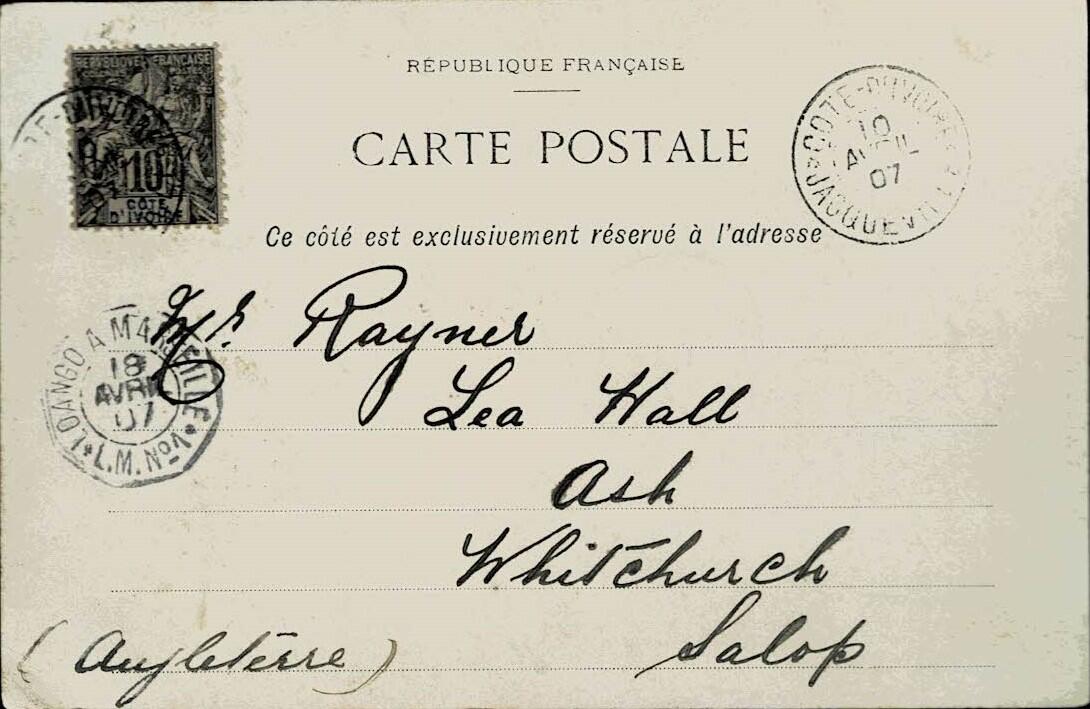 RÉPUBLIQUE FRANÇAISE
COLONIES POSTES
10
CÔTE
D'IVOIRE
RÉPUBLIQUE FRANÇAISE
CARTE POSTALE
Ce côté est exclusivement réservé à l'adresse
CÔTE-D'IVOIRE
10
AVRIL
07
JACQUEVILLE
LOANGO A MARSEILLE
18
AVRIL
07
L.M. Nº
Mrs. Rayner
Lea Hall
Ash
Whitchurch
Salop
(Angleterre)